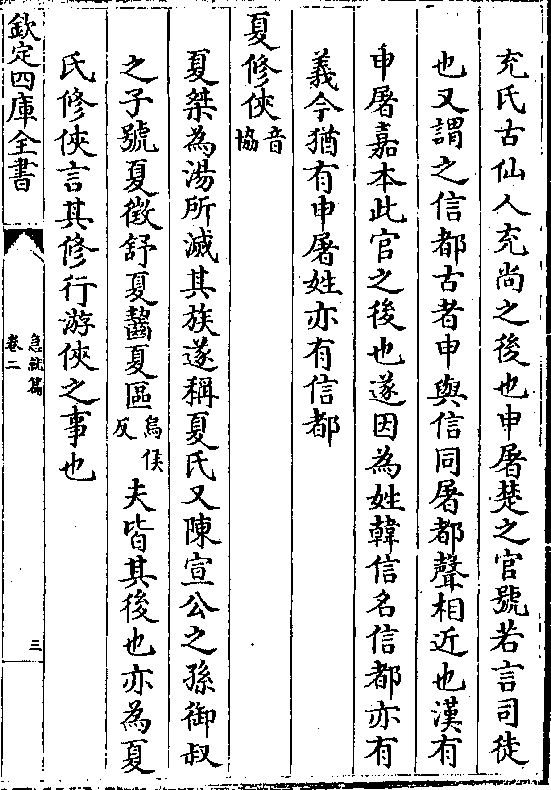 充氏古仙人充尚之後也申屠楚之官號若言司徒
也又謂之信都古者申與信同屠都聲相近也漢有
申屠嘉本此官之後也遂因為姓韓信名信都亦有
義今猶有申屠姓亦有信都
夏修俠音協
夏桀為湯所滅其族遂稱夏氏又陳宣公之孫御叔
之子號夏徵舒夏齧夏區烏侯反夫皆其後也亦為夏
氏修俠言其修行游俠之事也
欽定四庫全書
急就篇
卷二
三